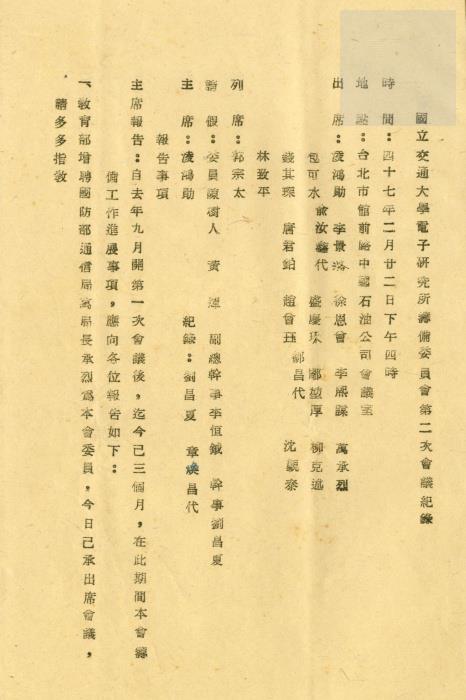 國立交通大學電子研究所籌備委員會第二次會議紀錄
時間：四十七年二月廿二日下午四時
地點：台北市館前路中國石油公司會議室
出席：凌鴻勛 李景潞 徐恩曾 李熙謀 萬承烈
包可永 俞汝鑫代 盛慶琜 鄭堃厚 柳克述
錢其琛 唐君鉑 趙曾珏 郝昌代 沈覲泰
林致平
列席：郭宗太
請假：委員陳樹人 黃 輝 副總幹事李恒鉞 幹事劉昌夏
主席：凌鴻勛 紀錄：劉昌夏 章 昌代
報告事項
主席報告：自去年九月開第一次會議後，迄今已三個月，在此期間本會籌
備工作進展事項，應向各位報告如下：
一、教育部增聘國防部通信局萬局長承烈為本會委員，今日已承出席會議，
請多多指教